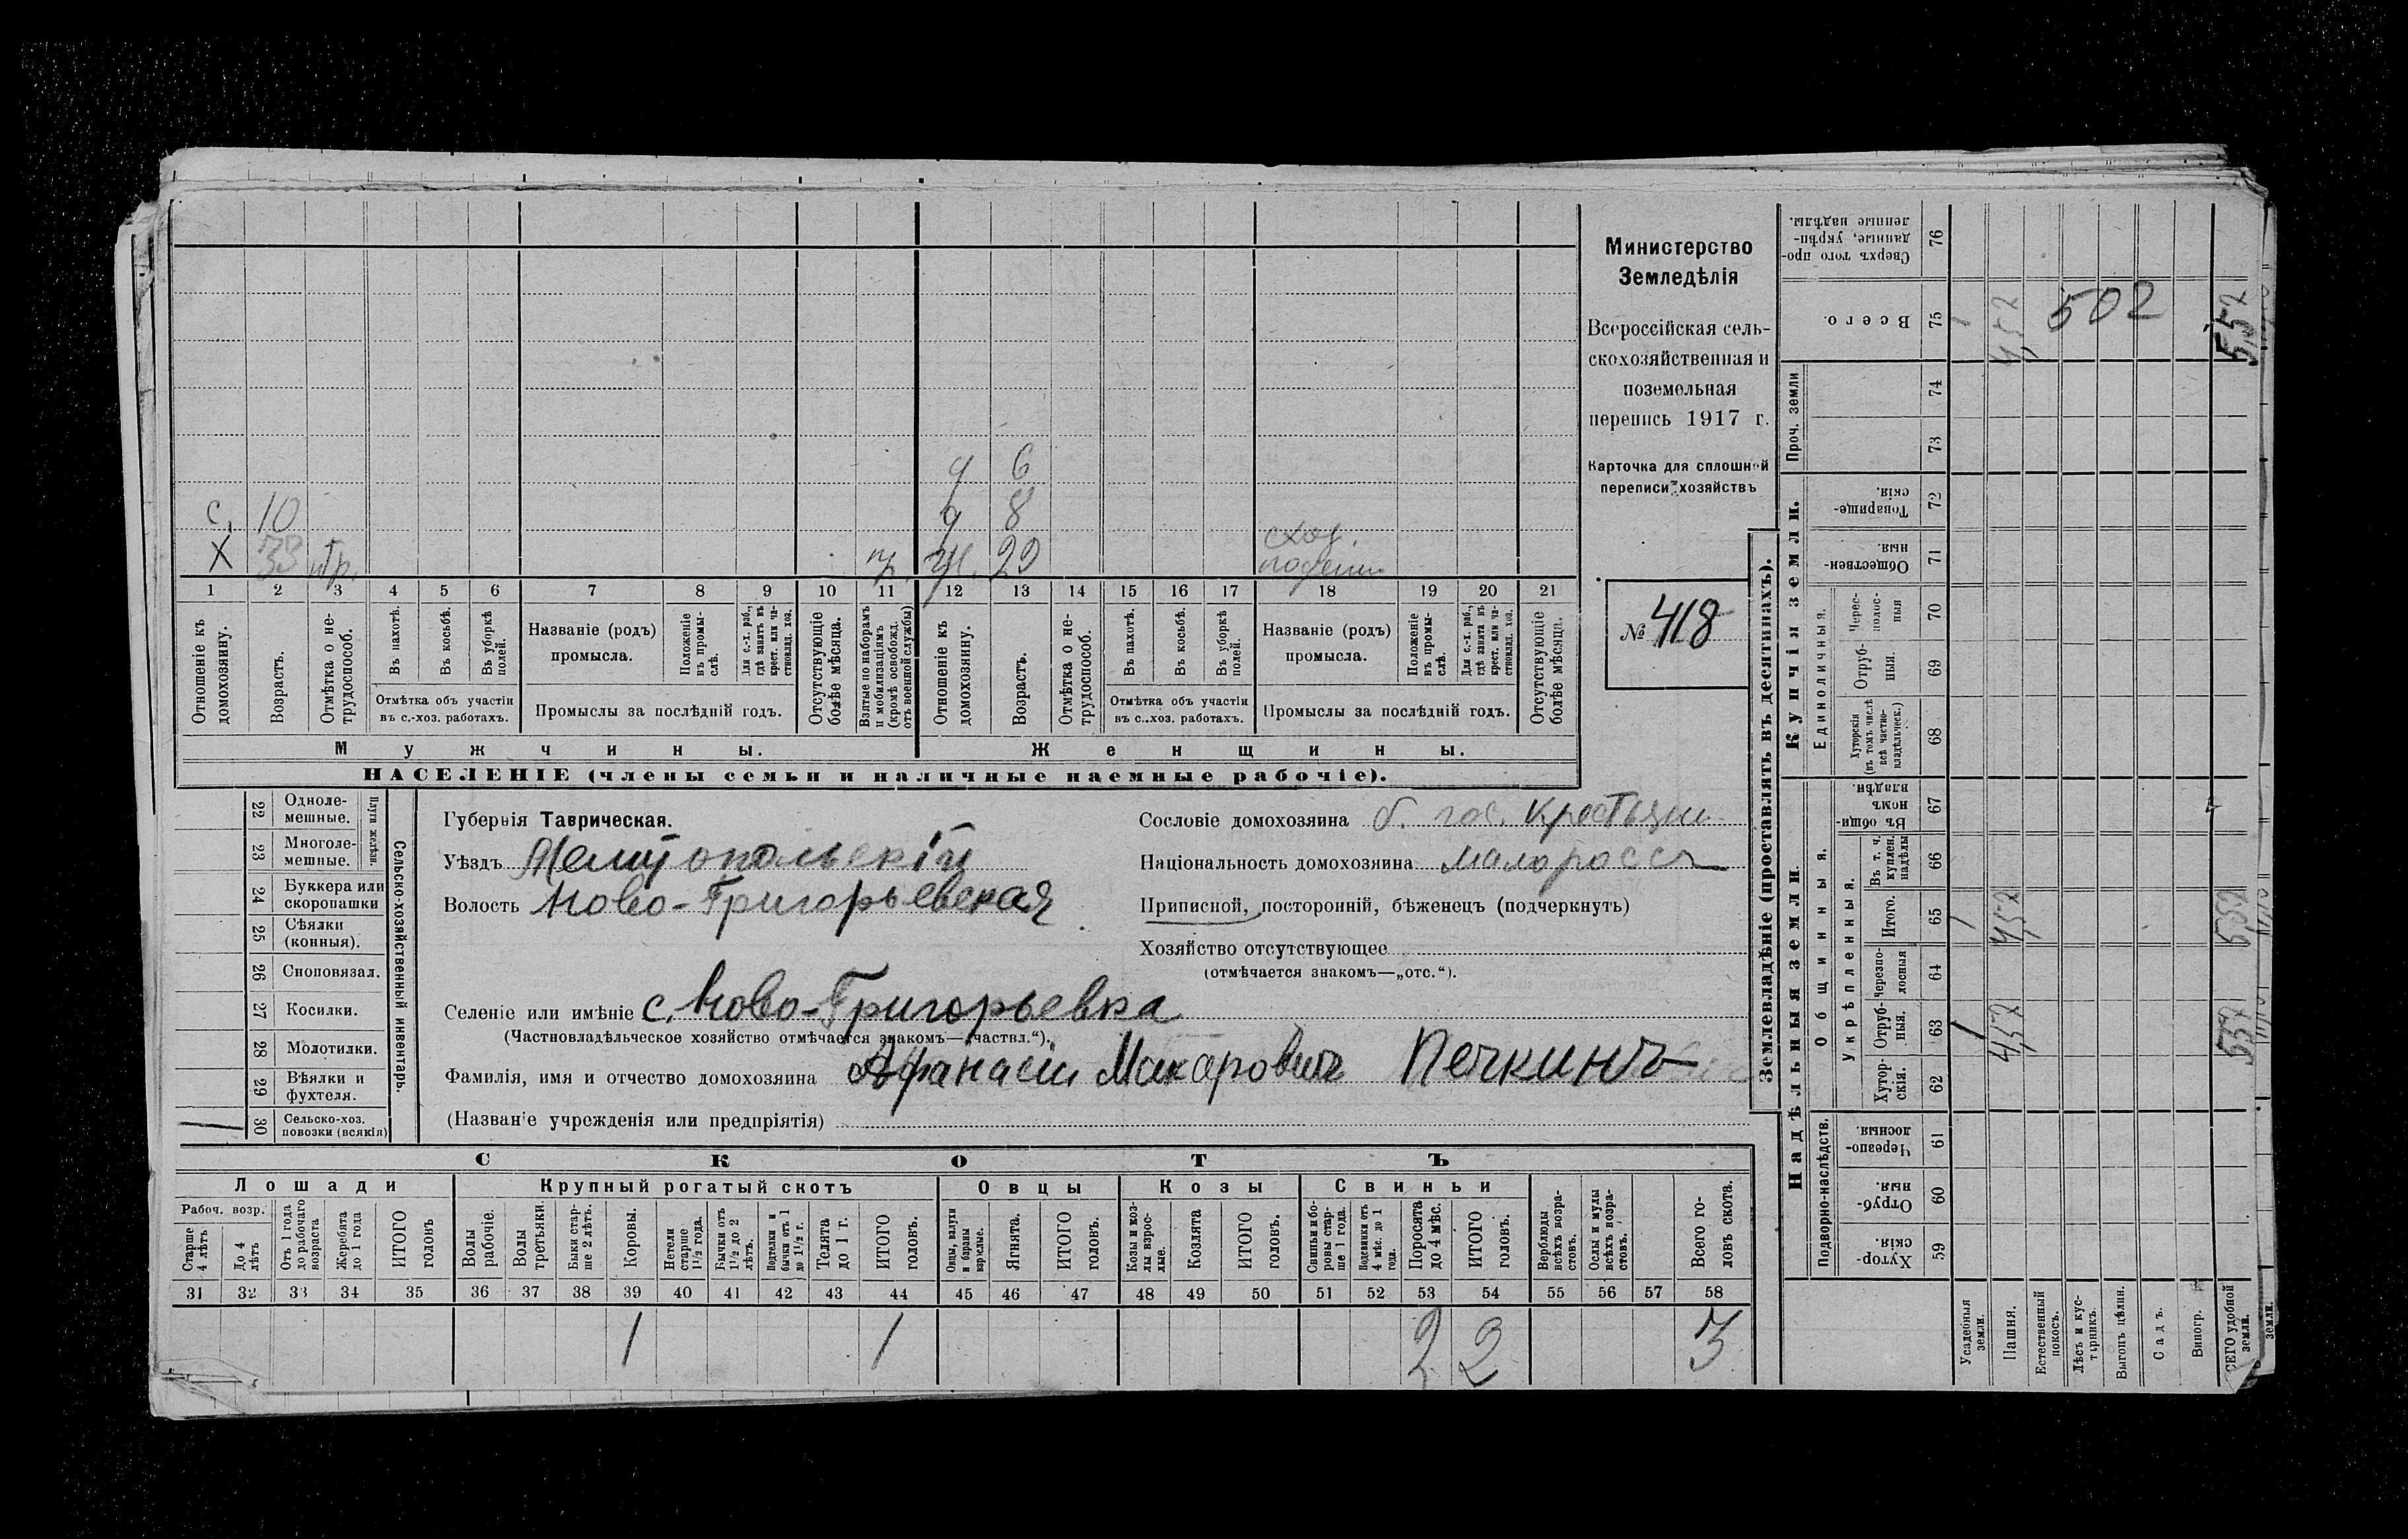 с. 10
ч 6
ч 8
Х 33 пр. ж. 29
1 2 3 4 5 6 7 8 9 10 11 12 13 14 15 16 17 18 19 20 21
Отношеніе къ домохозяину.
Возрастъ.
Отмѣтка о не-
трудоспособ.
Въ пахотѣ.
Въ косьбѣ.
Въ уборкѣ полей.
Отмѣтка объ участіи
въ с.-хоз. работахъ.
Названіе (родъ)
промысла.
Положеніе въ промы-
слѣ.
Для с.-х. раб., гдѣ занятъ въ крест. или ча-
стновлад. хоз.
Промыслы за послѣдній годъ.
Отсутствующіе болѣе мѣсяца.
Взятые по наборамъ и мобилизаціямъ (кромѣ освобожд. отъ военной службы)
Отношеніе къ домохозяину.
Возрастъ.
Отмѣтка о не-
трудоспособ.
Въ пахотѣ.
Въ косьбѣ.
Въ уборкѣ полей.
Отмѣтка объ участіи
въ с.-хоз. работахъ.
Названіе (родъ)
промысла.
Положеніе въ промы-
слѣ.
Для с.-х. раб., гдѣ занята въ крест. или ча-
стновлад. хоз.
Промыслы за послѣдній годъ.
Отсутствующіе болѣе мѣсяца.
Мужчины.
Женщины.
НАСЕЛЕНІЕ (члены семьи и наличные наемные рабочіе).
Министерство
Земледѣлія
Всероссійская сель-
скохозяйственная и
поземельная
перепись 1917 г.
Карточка для сплошной
переписи хозяйствъ
№ 418
22 Одноле-
мешные.
23 Многоле-
мешные.
Плуги желѣзн.
24 Буккера или
скоропашки
25 Сѣялки
(конныя).
26 Сноповязал.
27 Косилки.
28 Молотилки.
29 Вѣялки и
фухтеля.
30 Сельско-хоз.
повозки (всякія)
Сельско-хозяйственный инвентарь.
Губернія Таврическая.
Уѣздъ Мелитопольскій
Волость Ново-Григорьевская
Селеніе или имѣніе с. Ново-Григорьевка
(Частновладѣльческое хозяйство отмѣчается знакомъ—„частвл.“).
Фамилія, имя и отчество домохозяина Афанасій Макаровичъ Печкинъ
(Названіе учрежденія или предпріятія)
Сословіе домохозяина б. гос. крестьян
Національность домохозяина малороссъ
Приписной, посторонній, бѣженецъ (подчеркнуть)
Хозяйство отсутствующее
(отмѣчается знакомъ—„отс.“).
СКОТЪ
Лошади
Рабоч. возр.
Старше 4 лѣтъ
До 4 лѣтъ
Отъ 1 года до рабочаго возраста
Жеребята до 1 года
ИТОГО головъ
Крупный рогатый скотъ
Волы рабочіе.
Волы третьяки.
Быки стар-
ше 2 лѣтъ.
Коровы.
Нетели старше 1½ года.
Бычки отъ 1½ до 2 лѣтъ.
Подтелки и бычки отъ 1 до 1½ г.
Телята до 1 г.
ИТОГО головъ.
Овцы
Овцы, валухи и бараны взрослые.
Ягнята.
ИТОГО головъ.
Козы
Козы и коз-
лы взрос-
лые.
Козлята
ИТОГО головъ.
Свиньи
Свиньи и бо-
ровы стар-
ше 1 года.
Подсвинки отъ 4 мѣс. до 1 года.
Поросята до 4 мѣс.
ИТОГО головъ.
Верблюды всѣхъ возра-
стовъ.
Ослы и мулы всѣхъ возра-
стовъ.
Всего го-
ловъ скота.
31 32 33 34 35 36 37 38 39 40 41 42 43 44 45 46 47 48 49 50 51 52 53 54 55 56 57 58
1 1 2 2 3
Землевладѣніе (проставлять въ десятинахъ).
Сверхъ того про-
данные, укрѣп-
ленные надѣлы.
76
Всего.
75 1 4,52 502 5,52
Проч. земли
74
73
Купчія земли.
Товарище-
скія.
72
Обществен-
ныя.
71
Единоличныя.
Черес-
полос-
ныя
70
Отруб-
ныя.
69
Хуторскія (въ томъ числѣ всѣ частно-
владѣльческ.)
68
Надѣльныя земли.
Общинныя.
Въ общин-
номъ владѣн.
67
Укрѣпленныя.
Въ т. ч. куплен. надѣлы
66
Итого.
65 1 4,52 5,52
Черезпо-
лосныя
64
Отруб-
ныя.
63 1 4,52 5,52
Хутор-
скія.
62
Подворно-наслѣдств.
Черезпо-
лосныя.
61
Отруб-
ныя.
60
Хутор-
скія.
59
Усадебныя земли.
Пашня.
Естественный покосъ.
Лѣсъ и кус-
тарникъ.
Выгонъ цѣлин.
Садъ.
Виногр.
ВСЕГО удобной земли.
земли.